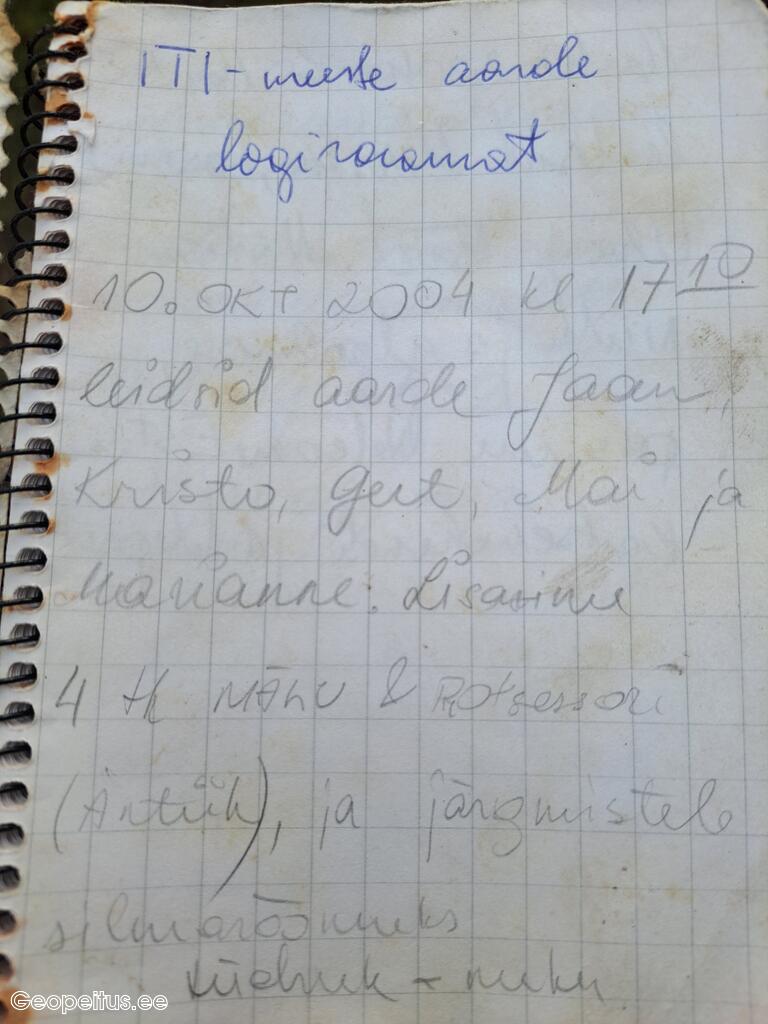 ITI-meeste aarde
logiraamat
10. OKT 2004 kl 17 10
leidsid aarde Jaan,
Kristo, Gert, Mai ja
Marianne. Lisasime
4 tk MÄLU & Protsessori
(Antiik), ja järgmistele
silmarõõmuks
- nuku
Geopeitus.ee